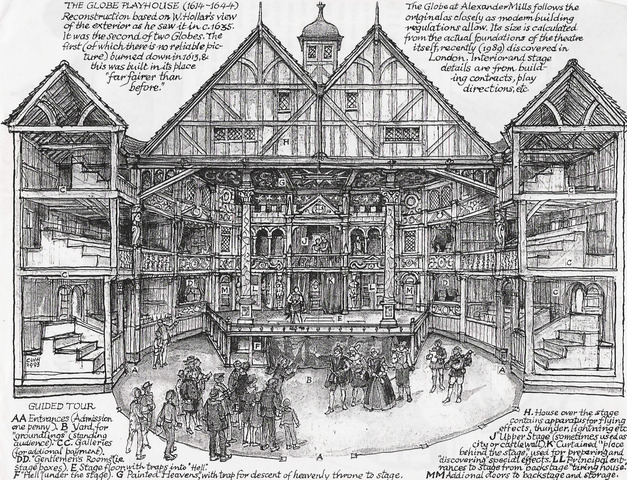 THE GLOBE PLAYHOUSE (1614-1644)
Reconstruction based on W. Hollar's view
of the exterior as he saw it in c.1635.
It was the second of two Globes. The
first (of which there is no reliable pic-
ture) burned down in 1613, &
this was built in its place
"far fairer than
before."
The Globe at Alexander Mills follows the
original as closely as modern building
regulations allow. Its size is calculated
from the actual foundations of the theatre
itself, recently (1989) discovered in
London. Interior and stage
details are from build-
ing contracts, play
directions, etc.
H
G
C
C
C
C
J
K
L
M
M
E
F
B
A
A
A
GUIDED TOUR
AA Entrances (Admission
one penny). B Yard, for
"groundlings" (standing
audience). C C. Galleries
(for addional payment).
DD. "Gentlemen's Rooms" (ie.
Stage boxes). E Stage floor with traps into "Hell".
F "Hell" (under the stage). G Painted "Heavens", with trap for descent of heavenly throne to stage.
H. House over the stage
contains apparatus for flying
effects, thunder, lightning etc
J Upper Stage (sometimes used as
city or castle wall). K Curtained "place
behind the stage," used for preparing and
"discovering" special effects. LL Principal ent-
rances to stage from backstage "tiring house".
MM Addional doors to backstage and storage.